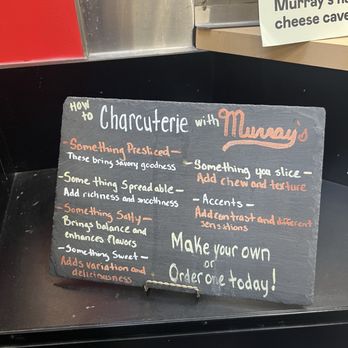 Murray's
cheese cave
How
to Charcuterie with Murray's
-Something Presliced-
These bring savory goodness
-Something Spreadable-
Add richness and smoothness
-Something Salty-
Brings balance and
enhances flavors
-Something Sweet-
Adds variation and
deliciousness
-Something you slice-
Add chew and texture
-Accents-
Add contrast and different
sensations
Make your own
or
Order one today!